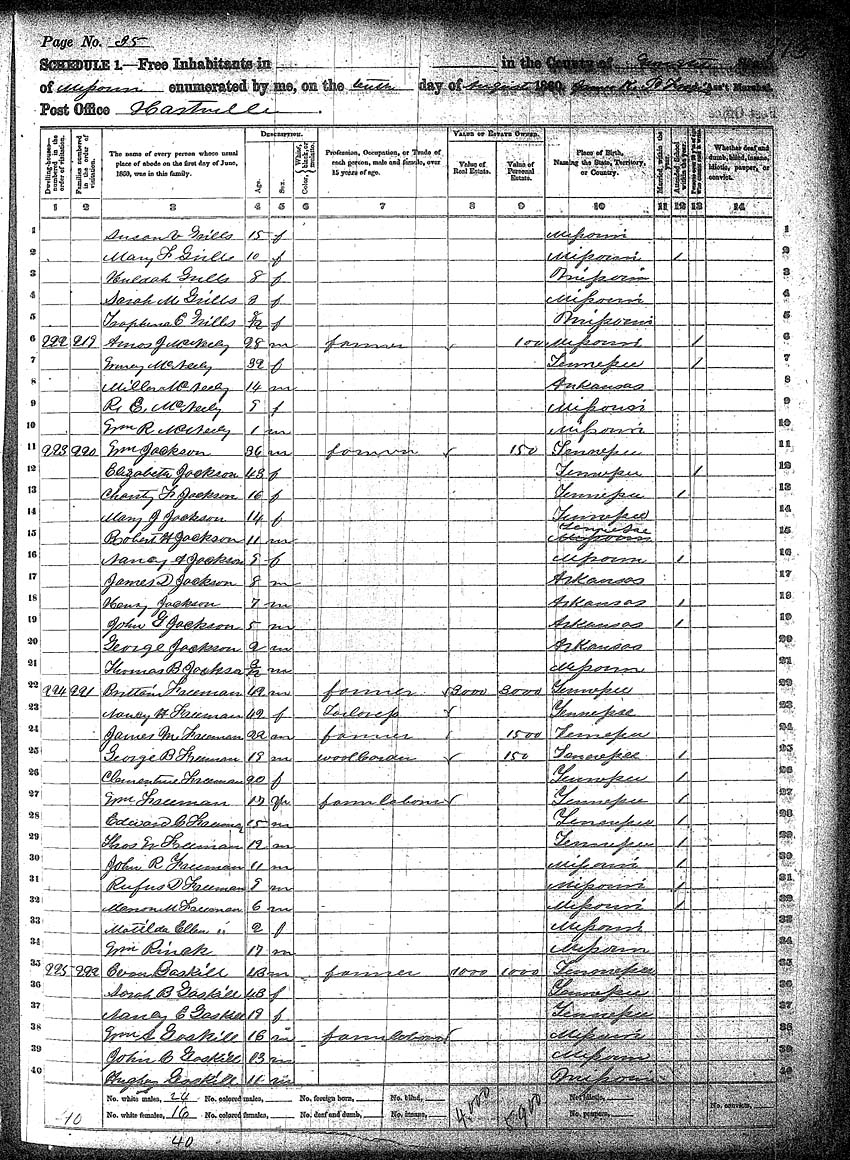 Page No. 25
SCHEDULE 1.—Free Inhabitants in in the County of
of Missouri enumerated by me, on the tenth day of August 1860. Ass't Marshal.
Post Office Hartville
DESCRIPTION. VALUE OF ESTATE OWNED.
Dwelling-houses—numbered in the order of visitation. Families numbered in the order of visitation. The name of every person whose usual place of abode on the first day of June, 1860, was in this family. Age. Sex. Color, White, black, or mulatto. Profession, Occupation, or Trade of each person, male and female, over 15 years of age. Value of Real Estate. Value of Personal Estate. Place of Birth, Naming the State, Territory, or Country. Married within the year. Attended School within the year. Whether deaf and dumb, blind, insane, idiotic, pauper, or convict.
1 2 3 4 5 6 7 8 9 10 11 12 13 14
1 Susan Grills 15 f Missouri 1
2 Mary F Grills 10 f Missouri 1 2
3 Huldah Grills 8 f Missouri 3
4 Sarah M Grills 3 f Missouri 4
5 C Grills f Missouri 5
6 222 219 Amos J McNeely 28 m farmer 100 Missouri 1 6
7 McNeely 32 f Tennessee 1 7
8 Miller McNeely 14 m Arkansas 8
9 R. E. McNeely 9 f Missouri 9
10 Wm R. McNeely 1 m Missouri 10
11 223 220 Wm Jackson 36 m farmer 150 Tennessee 11
12 Elizabeth Jackson 43 f Tennessee 1 12
13 Charity F Jackson 16 f Tennessee 1 13
14 Mary J Jackson 14 f Tennessee 14
15 Robert H Jackson 11 m Tennessee 15
16 Nancy A Jackson 9 f Missouri 1 16
17 James D Jackson 8 m Arkansas 17
18 Henry Jackson 7 m Arkansas 1 18
19 John G Jackson 5 m Arkansas 1 19
20 George Jackson 2 m Arkansas 20
21 Thomas B Jackson m Missouri 21
22 224 221 Britton Freeman 49 m farmer 3000 3000 Tennessee 22
23 Nancy H Freeman 42 f Tailoress Tennessee 23
24 James M Freeman 22 m farmer 1500 Tennessee 24
25 George B Freeman 19 m wool Carder 150 Tennessee 1 25
26 Clementine Freeman 20 f Tennessee 1 26
27 Wm Freeman 17 m farm laborer Tennessee 1 27
28 Edward C Freeman 15 m Tennessee 1 28
29 Thos W Freeman 12 m Tennessee 1 29
30 John R Freeman 11 m Missouri 1 30
31 Rufus D Freeman 9 m Missouri 1 31
32 M Freeman 6 m Missouri 1 32
33 Matilda Ellen " 2 f Missouri 33
34 Wm Rinck 17 m Missouri 34
35 225 222 Evan Gaskill 43 m farmer 1000 1000 Tennessee 35
36 Sarah B Gaskill 43 f Tennessee 36
37 Nancy E Gaskill 19 f Tennessee 37
38 Wm S Gaskill 16 m farm laborer Missouri 38
39 John C Gaskill 13 m Missouri 39
40 Hughey Gaskill 11 m Missouri 40
No. white males, 24 No. colored males, No. foreign born, No. blind, 4,000 5900 No. idiotic,
40 No. white females, 16 No. colored females, No. deaf and dumb, No. insane, No. paupers, No. convicts,
40